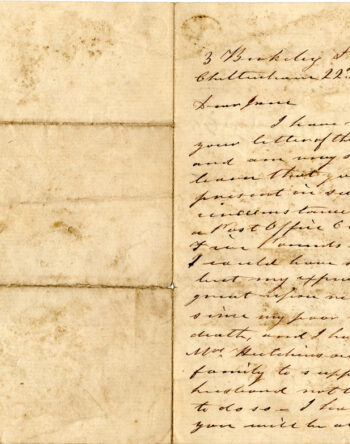 3 Berkeley
Cheltenham 22
Dear Jane
I have
your letter of the
and am very s
learn that you
present in su
circumstance
a Post Office O
Five Pounds
I would have s
but my expen
great upon me
since my poor
death, and I ha
Mrs Hutchins an
family to supp
husband not
to do so – I ho
you will be a